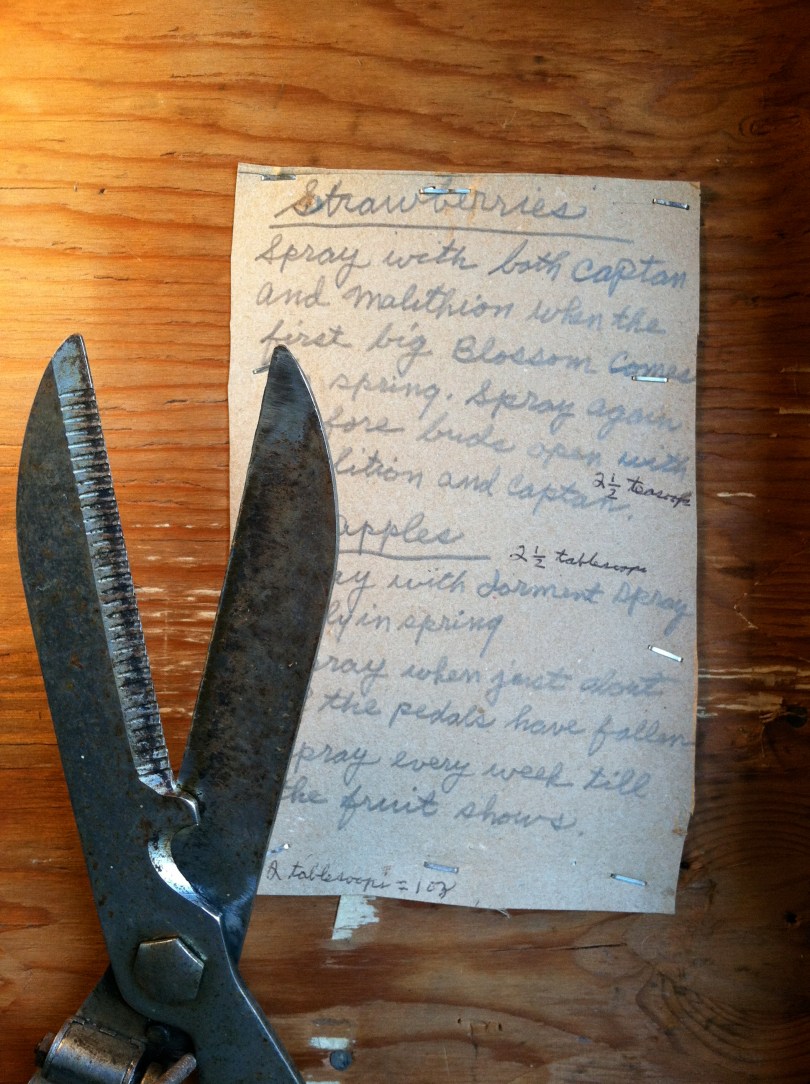 Strawberries
Spray with both Captan
and Malithion when the
first big Blossom Comes
spring. Spray again
fore buds open with
lition and Captan.
2½ teascoops
apples
2½ tablescoops
ay with Dorment Spray
ly in spring
pray when just about
the pedals have fallen
pray every week till
the fruit shows.
2 tablescoops = 1 oz